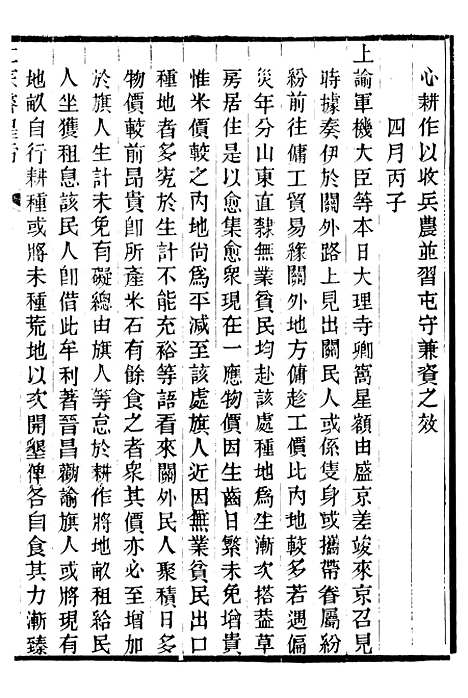 心耕作以收兵農並習屯守兼資之效
四月丙子
上諭軍機大臣等本日大理寺卿窩星額由盛京差竣來京召見
時據奏伊於關外路上見出關民人或係隻身或攜帶眷屬紛
紛前往傭工貿易緣關外地方傭趁工價比內地較多若遇偏
災年分山東直隸無業貧民均赴該處種地為生漸次搭葢草
房居住是以愈集愈衆現在一應物價因生齒日繁未免增貴
惟米價較之內地尚為平減至該處旗人近因無業貧民出口
種地者多究於生計不能充裕等語看來關外民人聚積日多
物價較前昂貴卽所產米石有餘食之者衆其價亦必至增加
於旗人生計未免有礙總由旗人等怠於耕作將地畝租給民
人坐獲租息該民人卽借此牟利著晉昌勸諭旗人或將現有
地畝自行耕種或將未種荒地以次開墾俾各自食其力漸臻